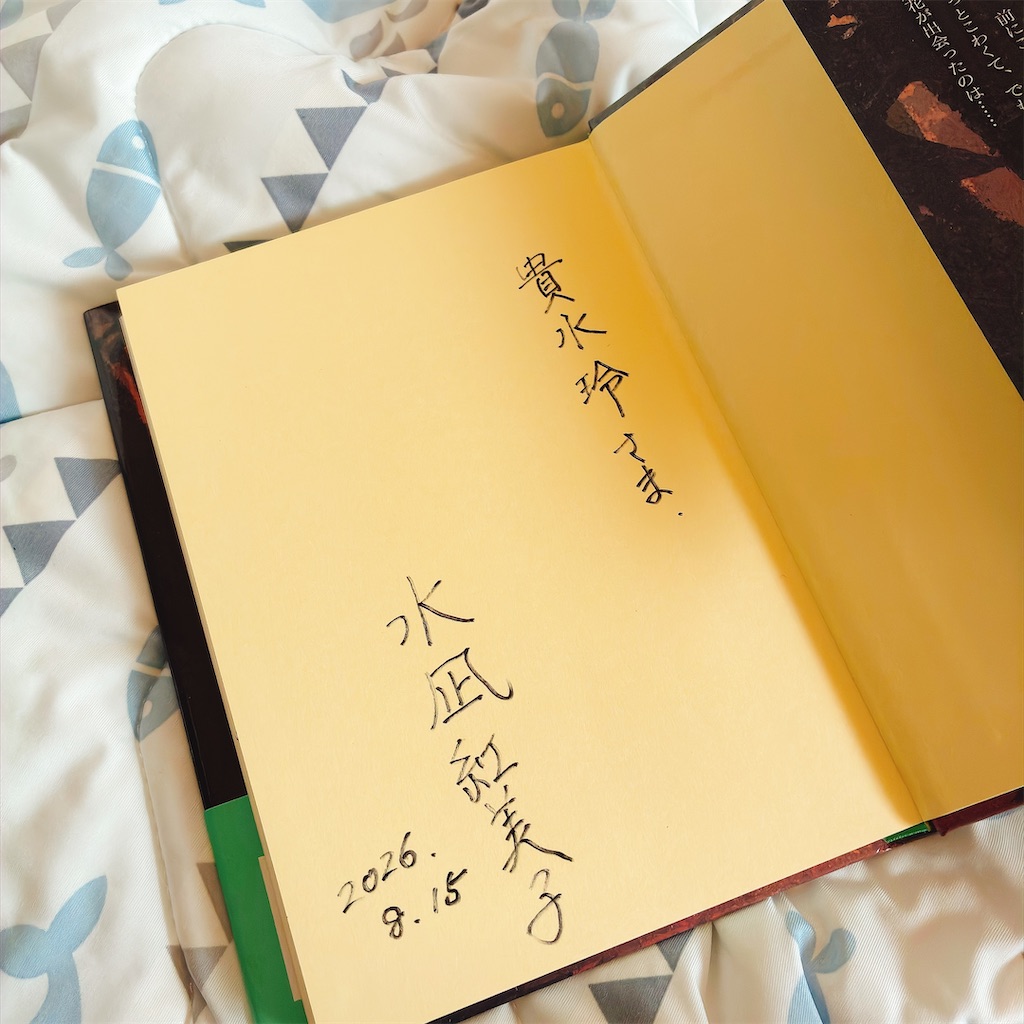 前に
っとこわくて、でも
花が出会ったのは……
貴水玲さま.
水凪紅美子
2026.
8.15